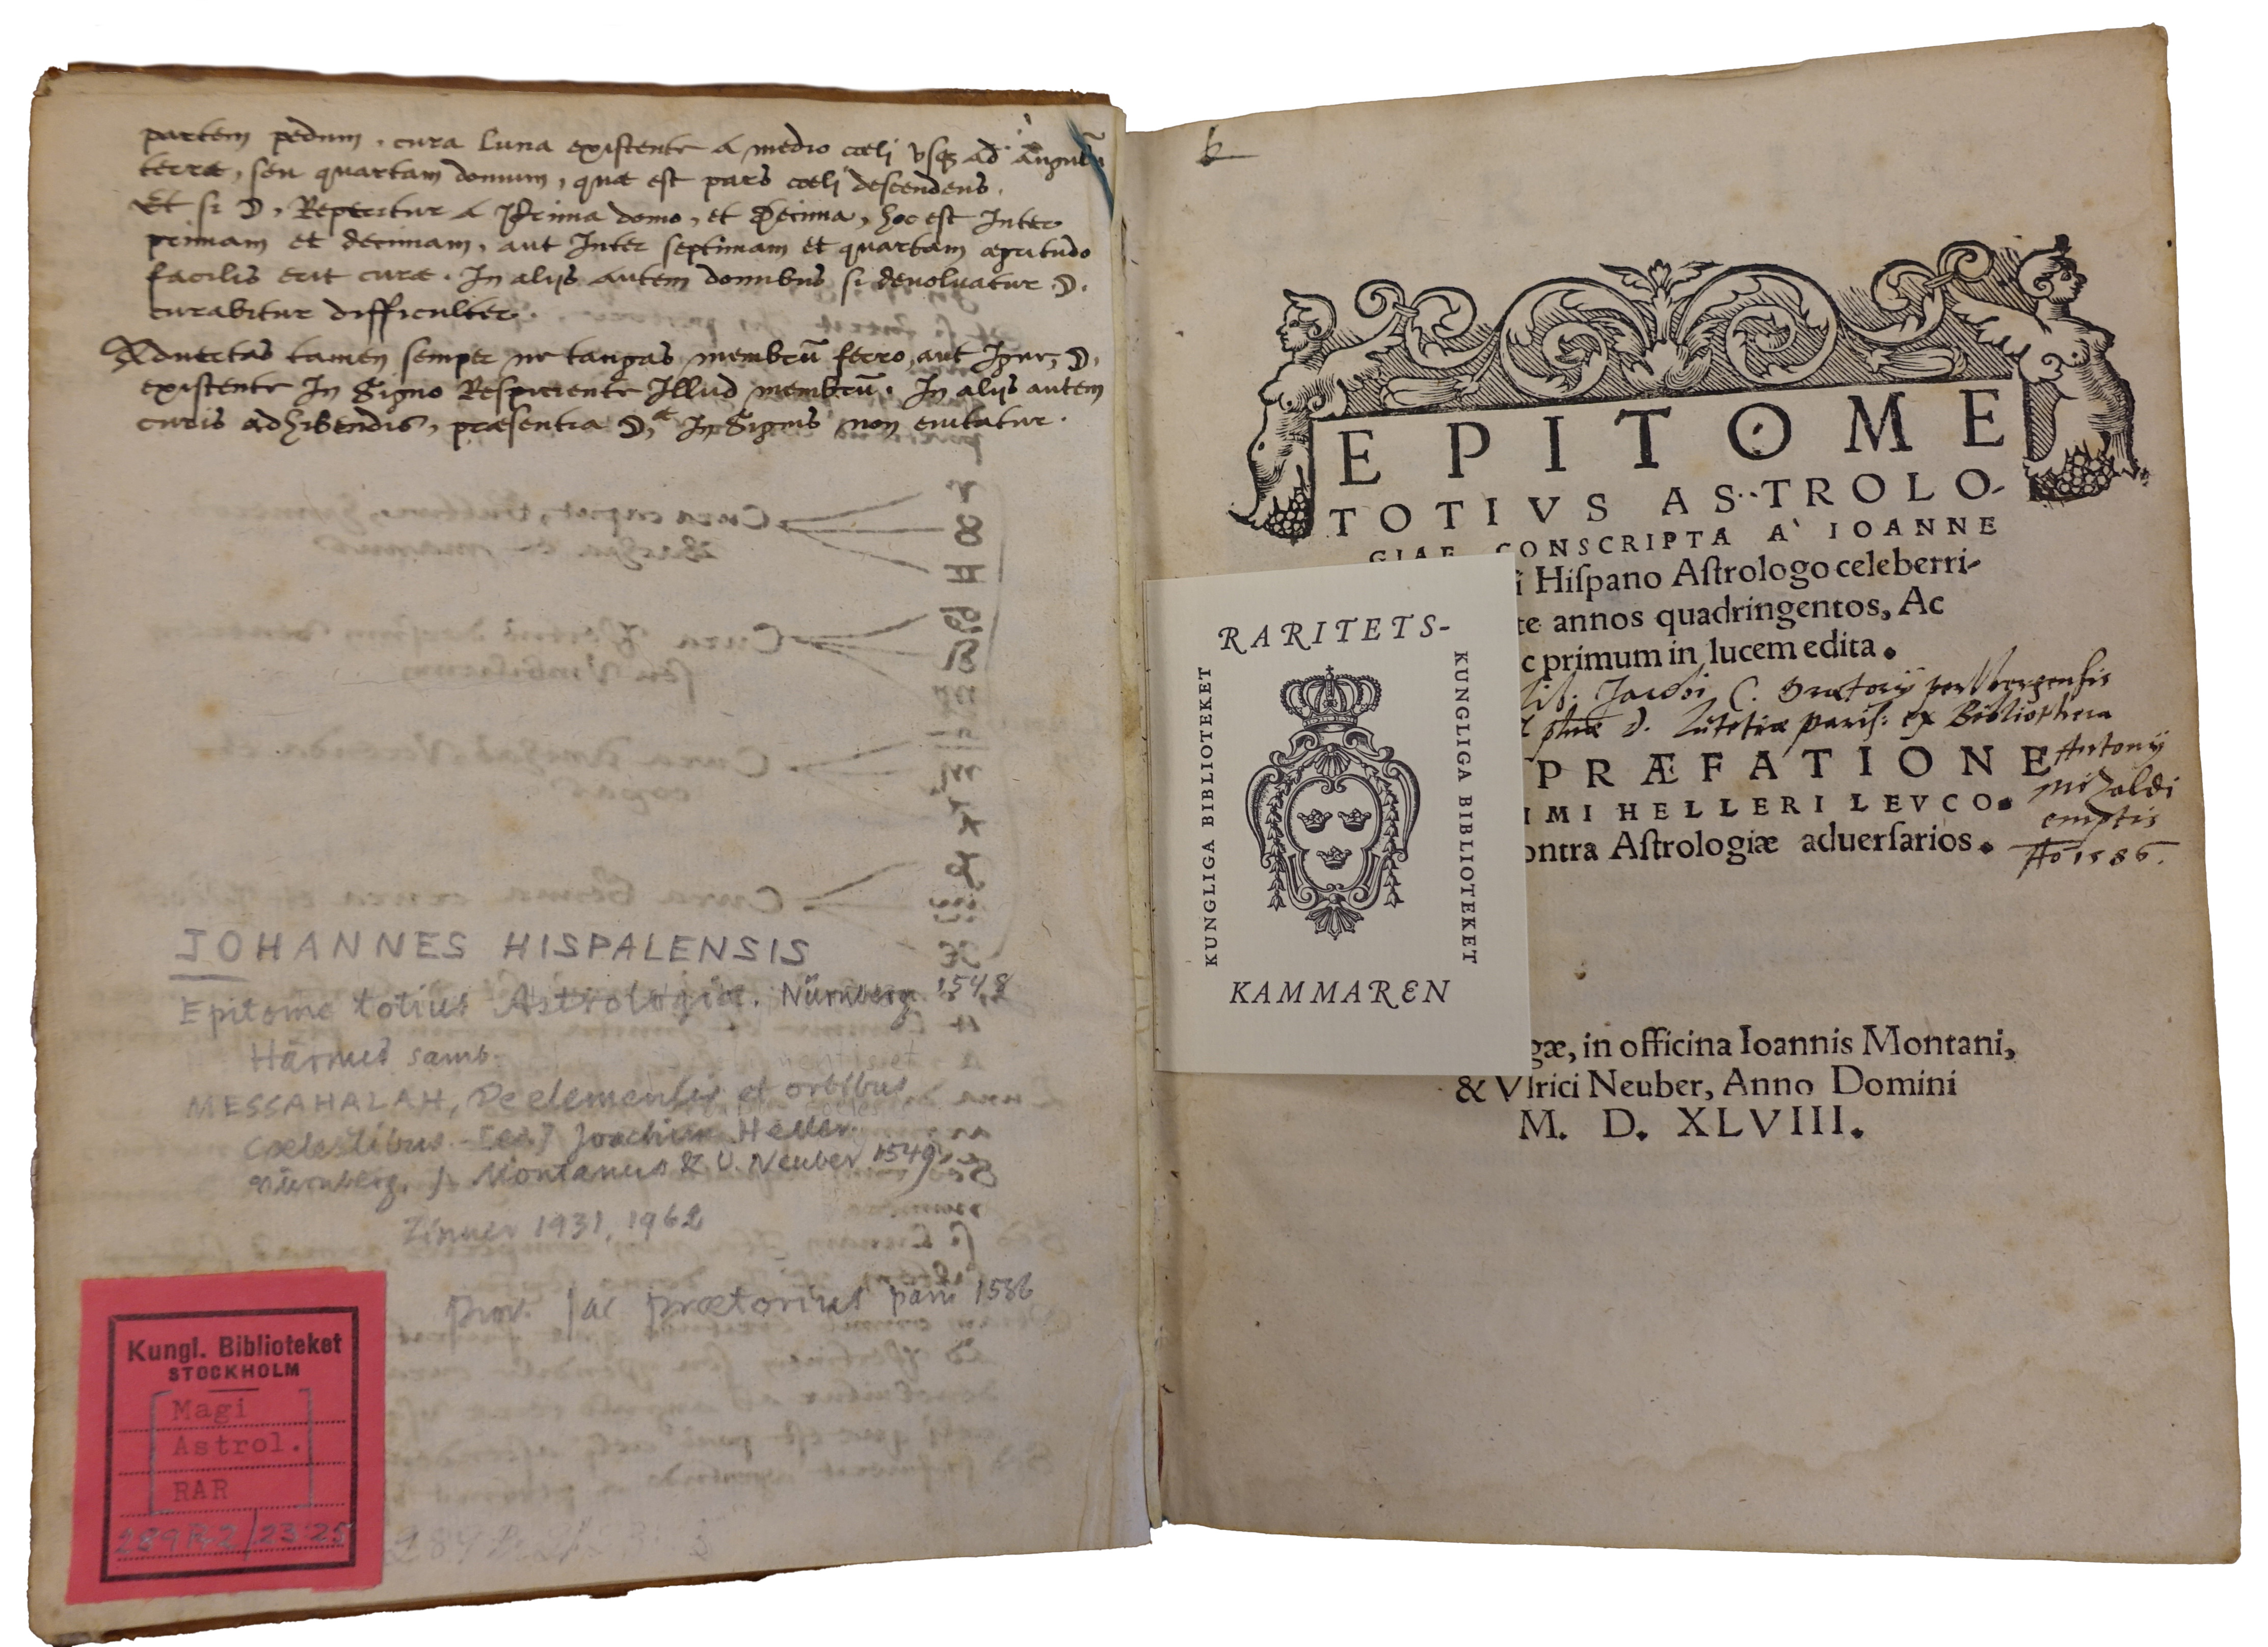 partem pedum, cura luna existente a medio cœli vsq; ad angulũ
terræ, seu quartam domum, quæ est pars cœli descendens.
Et si ☽, Reperitur a Prima domo, et Decima, hoc est Inter
primam et decimam, aut Inter septimam et quartam ægritudo
facilis erit curæ. In alijs autem domibus si deuoluatur ☽.
curabitur difficulter.
Aduertas tamen semper ne tangas membrũ ferro, aut Igne, ☽.
existente In Signo Respiciente Illud membrũ. In alijs autem
curis adhibendis, præsentia ☽, In Signis non euitatur.
JOHANNES HISPALENSIS
Epitome totius Astrologiæ. Nürnberg 1548
Härmed samb.
MESSAHALAH, De elementis et orbibus
cœlestibus. [ed] Joachim Heller
Nürnberg, J. Montanus & U. Neuber 1549.
Zinner 1931, 1962
Prov. Jac Prætorius Paris 1586
Kungl. Biblioteket
STOCKHOLM
Magi
Astrol.
RAR
23:25
EPITOME
TOTIVS AS-TROLO-
GIAE CONSCRIPTA A' IOANNE
i Hiſpano Aſtrologo celeberri-
te annos quadringentos, Ac
c primum in lucem edita.
Jacobi C. Prætorij
Lutetiæ Paris: ex Bibliotheca
Antonij
Mizaldi
emptis
Aº 1586.
PRÆFATIONE
IMI HELLERI LEVCO.
ontra Aſtrologiæ aduerſarios.
gæ, in officina Ioannis Montani,
& Vlrici Neuber, Anno Domini
M. D. XLVIII.
RARITETS-
KUNGLIGA BIBLIOTEKET
KUNGLIGA BIBLIOTEKET
KAMMAREN